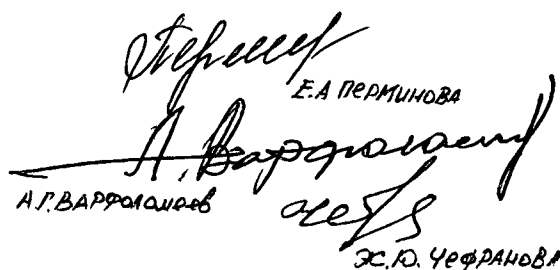 Е.А ПЕРМИНОВА
А. Варфоломе
А.Г. ВАРФОЛОМЕЕВ
Ж.Ю. ЧЕФРАНОВА